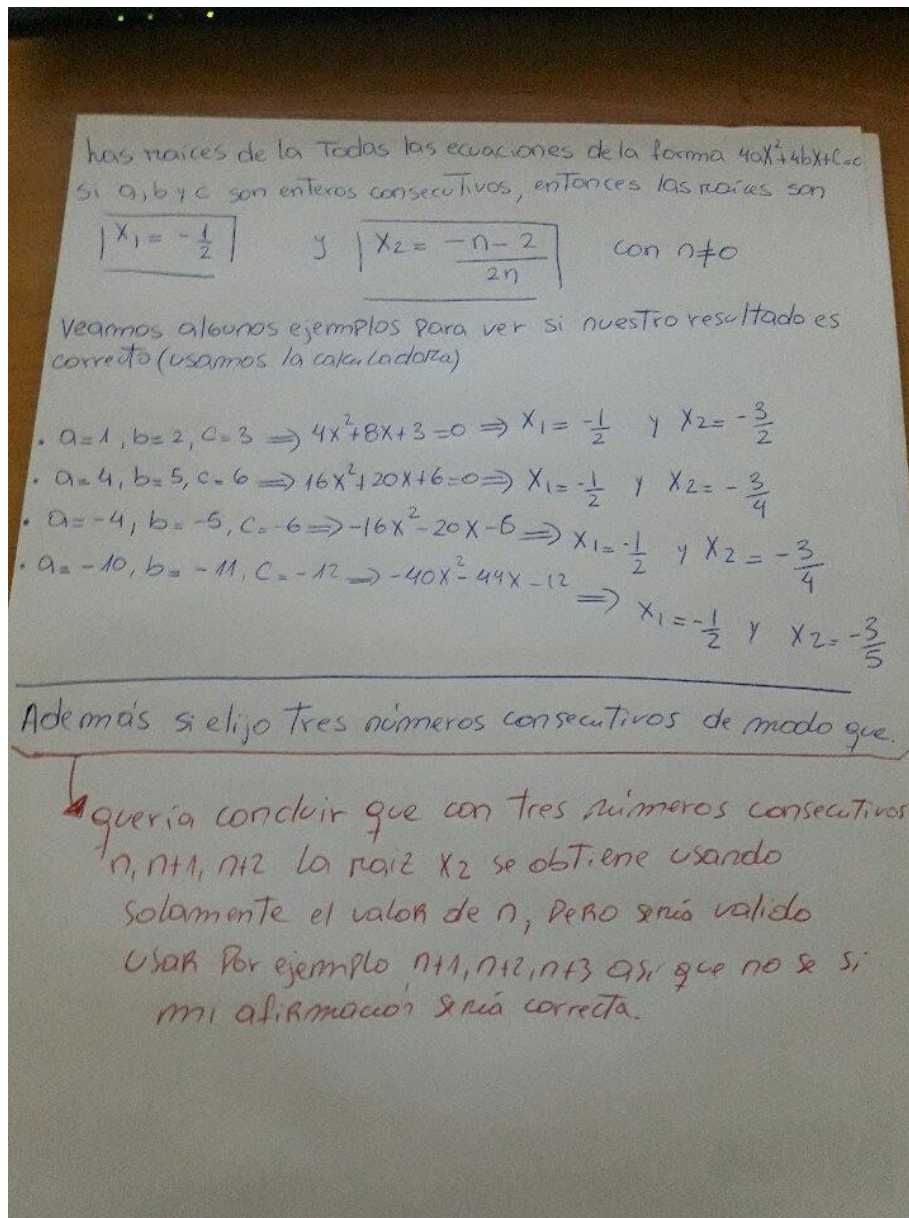 Las raices de la Todas las ecuaciones de la forma 4ax²+4bx+c=0
si a, b y c son enteros consecutivos, entonces las raices son
x₁ = -1/2 y x₂ = (-n-2)/2n con n≠0
Veamos algunos ejemplos para ver si nuestro resultado es
correcto (usamos la calculadora)
. a=1, b=2, c=3 ⇒ 4x²+8x+3=0 ⇒ x₁ = -1/2 y x₂ = -3/2
. a=4, b=5, c=6 ⇒ 16x²+20x+6=0 ⇒ x₁ = -1/2 y x₂ = -3/4
. a=-4, b=-5, c=-6 ⇒ -16x²-20x-6 ⇒ x₁ = -1/2 y x₂ = -3/4
. a=-10, b=-11, c=-12 ⇒ -40x²-44x-12 ⇒ x₁ = -1/2 y x₂ = -3/5
Además si elijo Tres números consecutivos de modo que.
quería concluir que con tres números consecutivos
n, n+1, n+2 la raiz x₂ se obtiene usando
solamente el valor de n, pero sería valido
usar por ejemplo n+1, n+2, n+3 así que no se si
mi afirmación sería correcta.